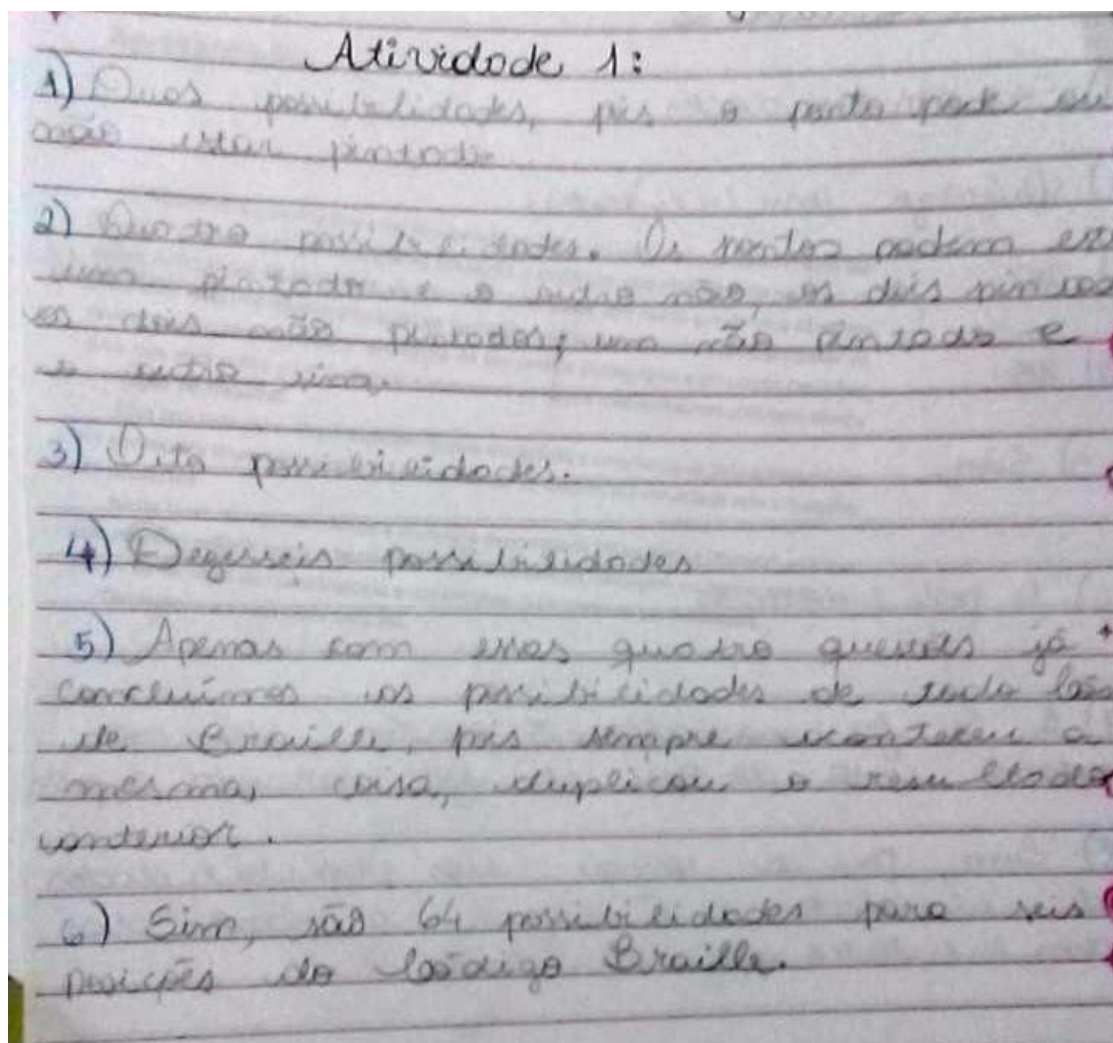 Atividade 1:
1) Duas possibilidades, pois o ponto pode ou
não estar pintado
2) Quatro possibilidades. Os pontos podem
um pintado e o outro não, os dois
os dois não pintados; um não pintado e
o outro sim.
3) Oito possibilidades.
4) Dezesseis possibilidades
5) Apenas com essas quatro já
concluímos as possibilidades de
de Braille, pois sempre aconteceu a
mesma, coisa, duplicou o resultado
anterior.
6) Sim, são 64 possibilidades para seis
posições do Código Braille.